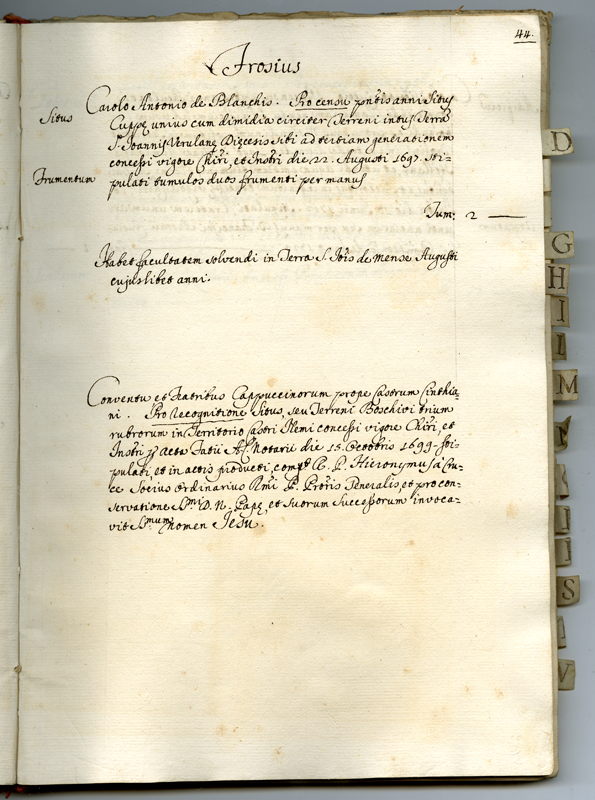 44.
Frosius
Carolo Antonio de Blanchis. Pro censu pñtis anni Situs
Situs
Cuppę unius cum dimidia circiter Terreni intus Terrã
S. Joannis Verulanę Dięcesis sibi ad tertiam generationem
concessi vigore Chiri, et Instri die 22. Augusti 1697. sti-
Frumentum
pulati tumulos duos frumenti per manus
Tum: 2 —
Habet facultatem solvendi in Terra S. Jõis de mense Augusti
cujuslibet anni.
Conventu et Fratribus Cappuccinorum prope Castrum Cinthia-
ni. Pro Recognitione Situs, seu Terreni Boschivi trium
rubrorum in Territorio Castri Nemi concessi vigore Chiri, et
Instri Acta Tatii A.C. Notarii die 15. Octobris 1699. sti-
pulati et in actis producti P. P. Hieronymus a Cru-
ce Socius Ordinarius Rmi P. Generalis, et pro con-
servatione Smi D. N. Papę, et Suorum Successorum invoca-
vit Smum Nomen Jesu.
D
G
H
I
L
M
S
I
V